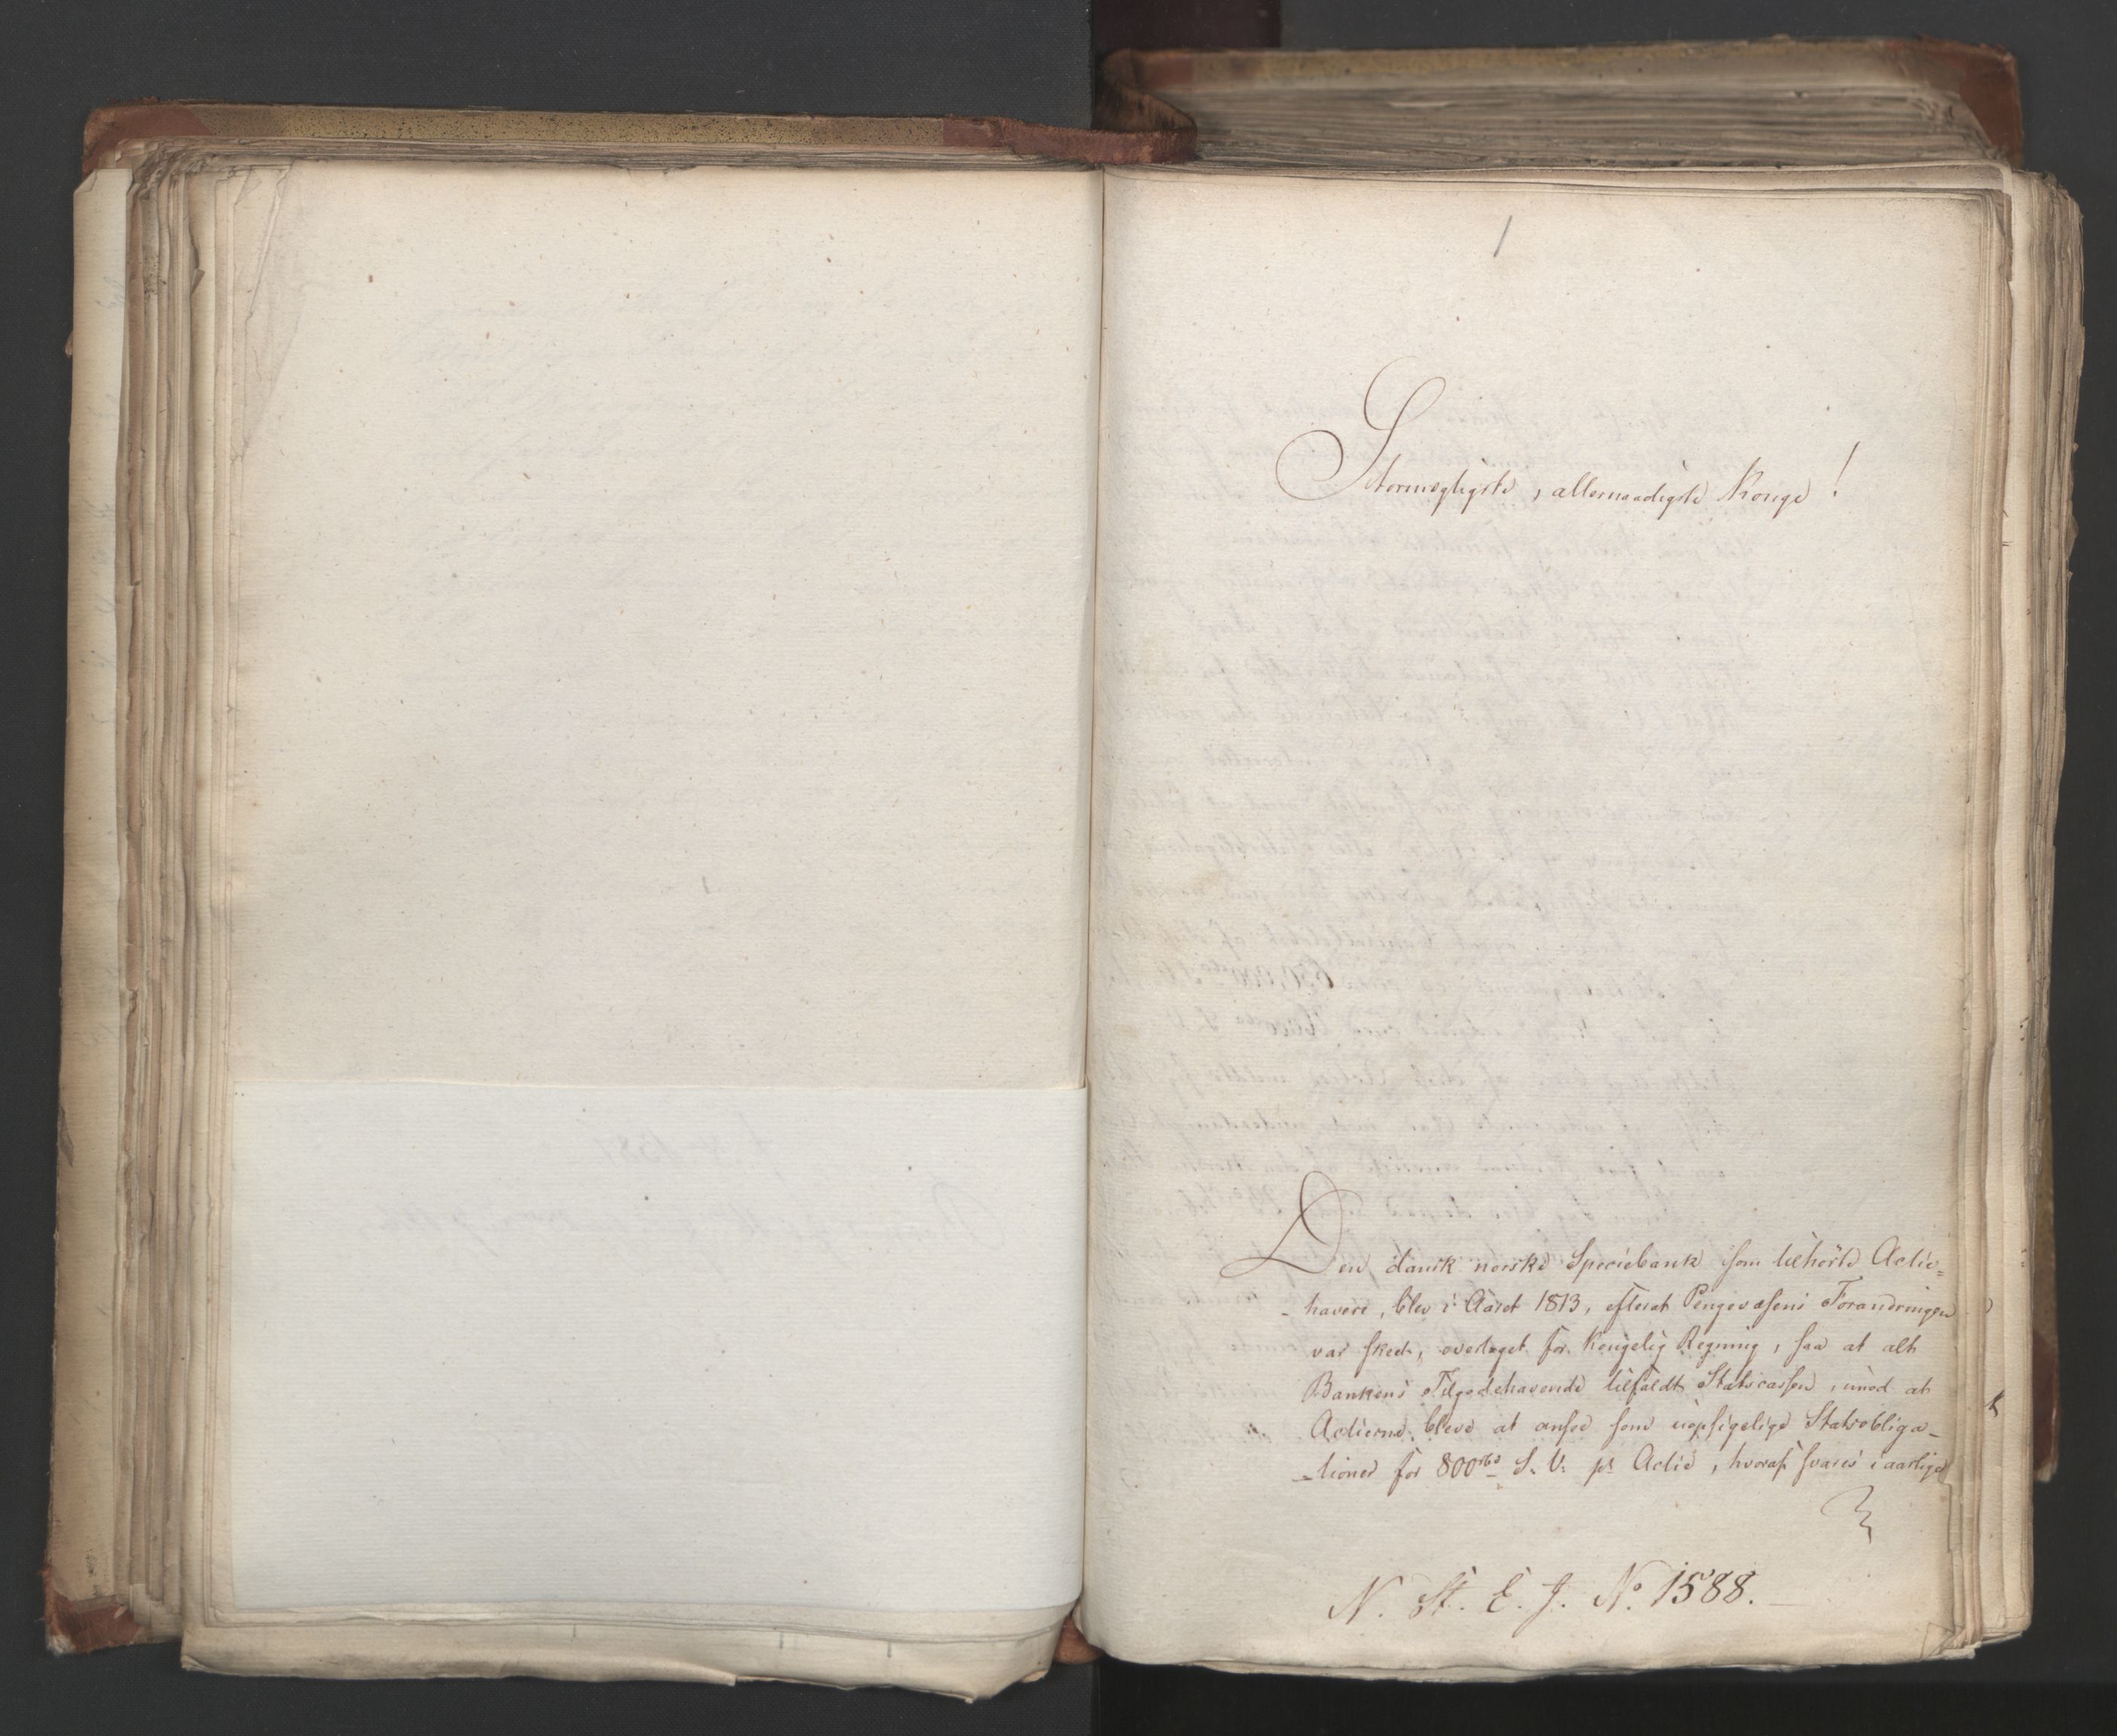 1
Stormægtigste, allernaadigste Konge!
Den dansk norske Speciebank som tilhørte Actie=
-havere, blev i Aaret 1813, efterat Pengevæsens Forandringen
var skedt, overtaget for Kongelig Regning, saa at alt
Bankens Tilgodehavende tilfaldt Statscassen, imod at
Actierne bleve at ansee som uopsigelige Statsobliga-
-tioner for 800 rbd S. V. pr Actie, hvoraf svares i aarlige
N. St. E. J. No. 1588.